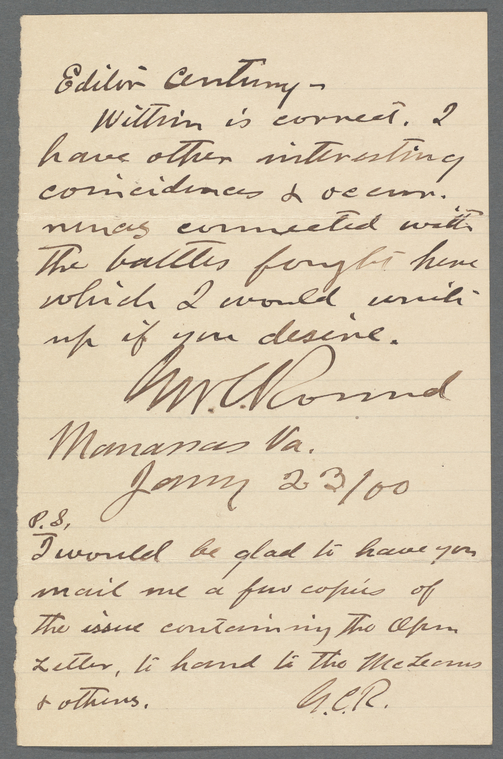 Editor Century –
Within is correct. I
have other interesting
coincidences & occur-
rences connected with
the battles fought here
which I would write
up if you desire.
Geo. C. Round
Manassas Va.
Jany 23/00
P.S.
I would be glad to have you
mail me a few copies of
the issue containing the Open
Letter, to hand to the McLeans
& others.
G.C.R.